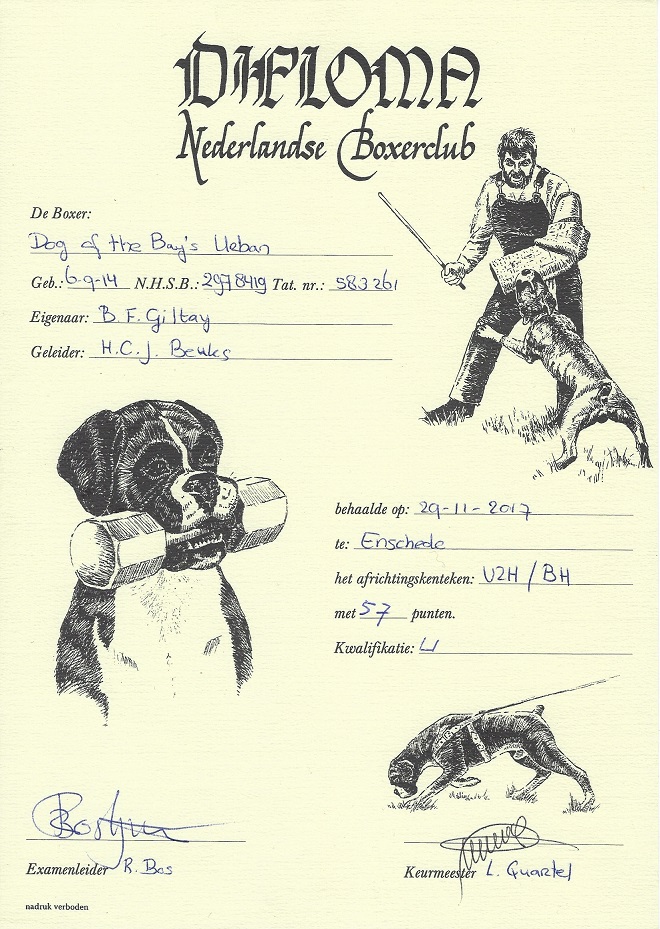 DIPLOMA
Nederlandse Boxerclub
De Boxer:
Dog of the Bay's Urban
Geb.: 6-9-14 N.H.S.B.: 2978419 Tat. nr.: 583261
Eigenaar: B.F. Giltay
Geleider: H.C.J. Beuks
behaalde op: 29-11-2017
te: Enschede
het africhtingskenteken: VZH / BH
met 57 punten.
Kwalifikatie: U
Examenleider R. Bos
Keurmeester L. Quartel
nadruk verboden